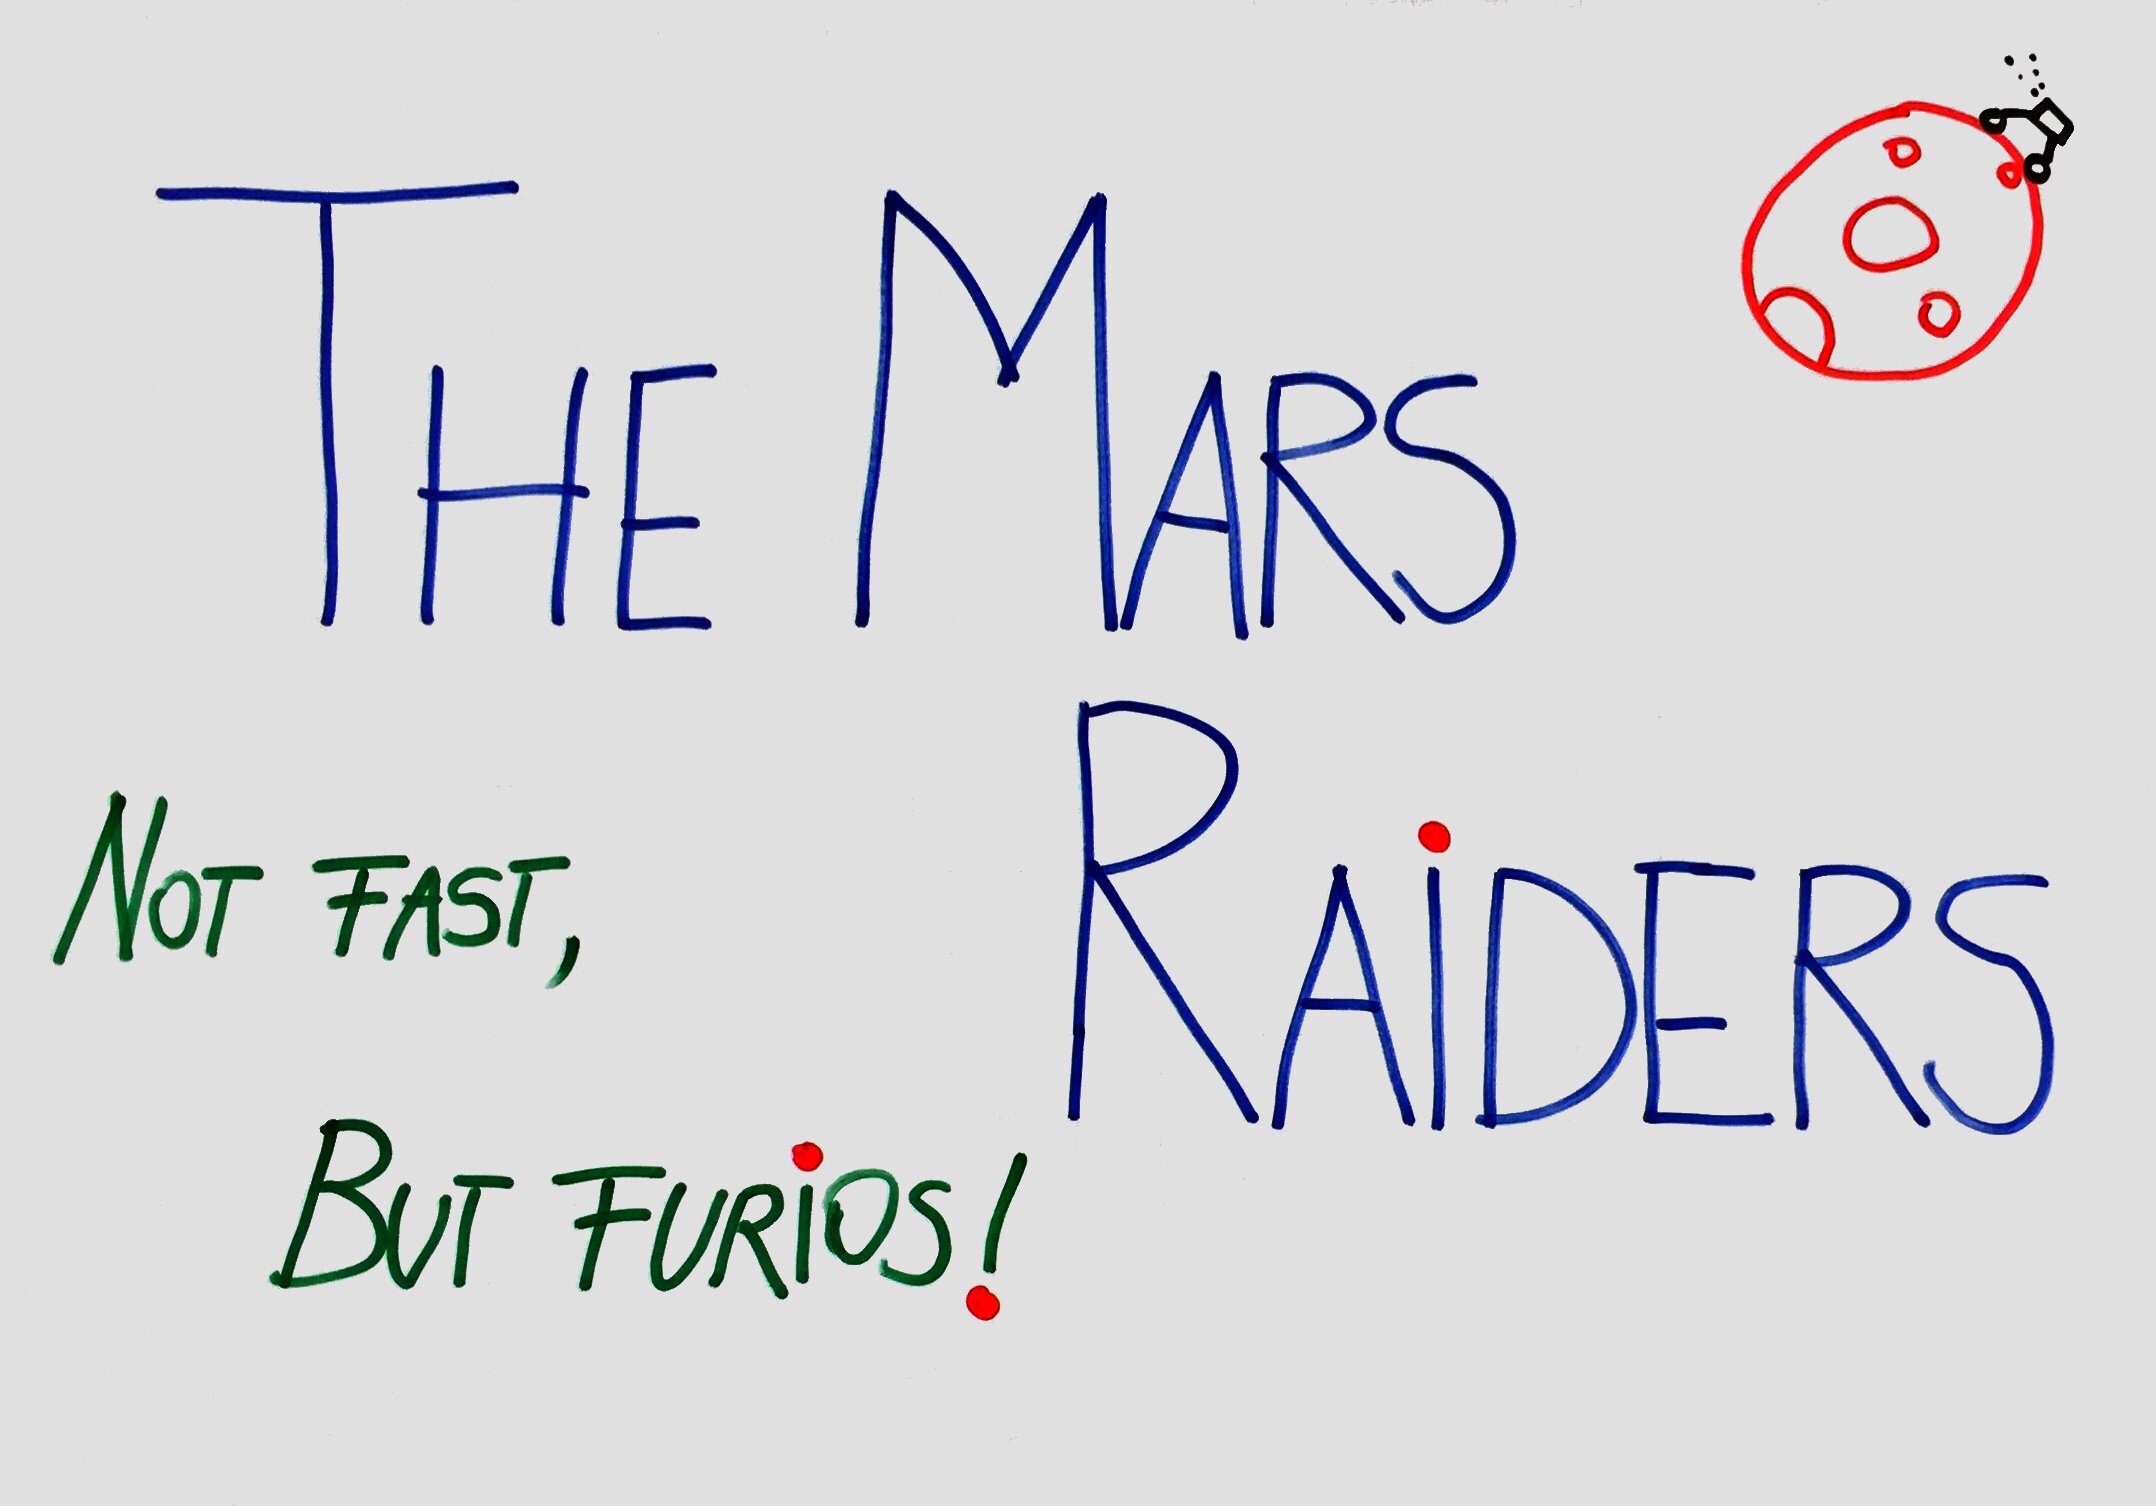 THE MARS
RAiDERS
NOT FAST,
BUT FURiOS!